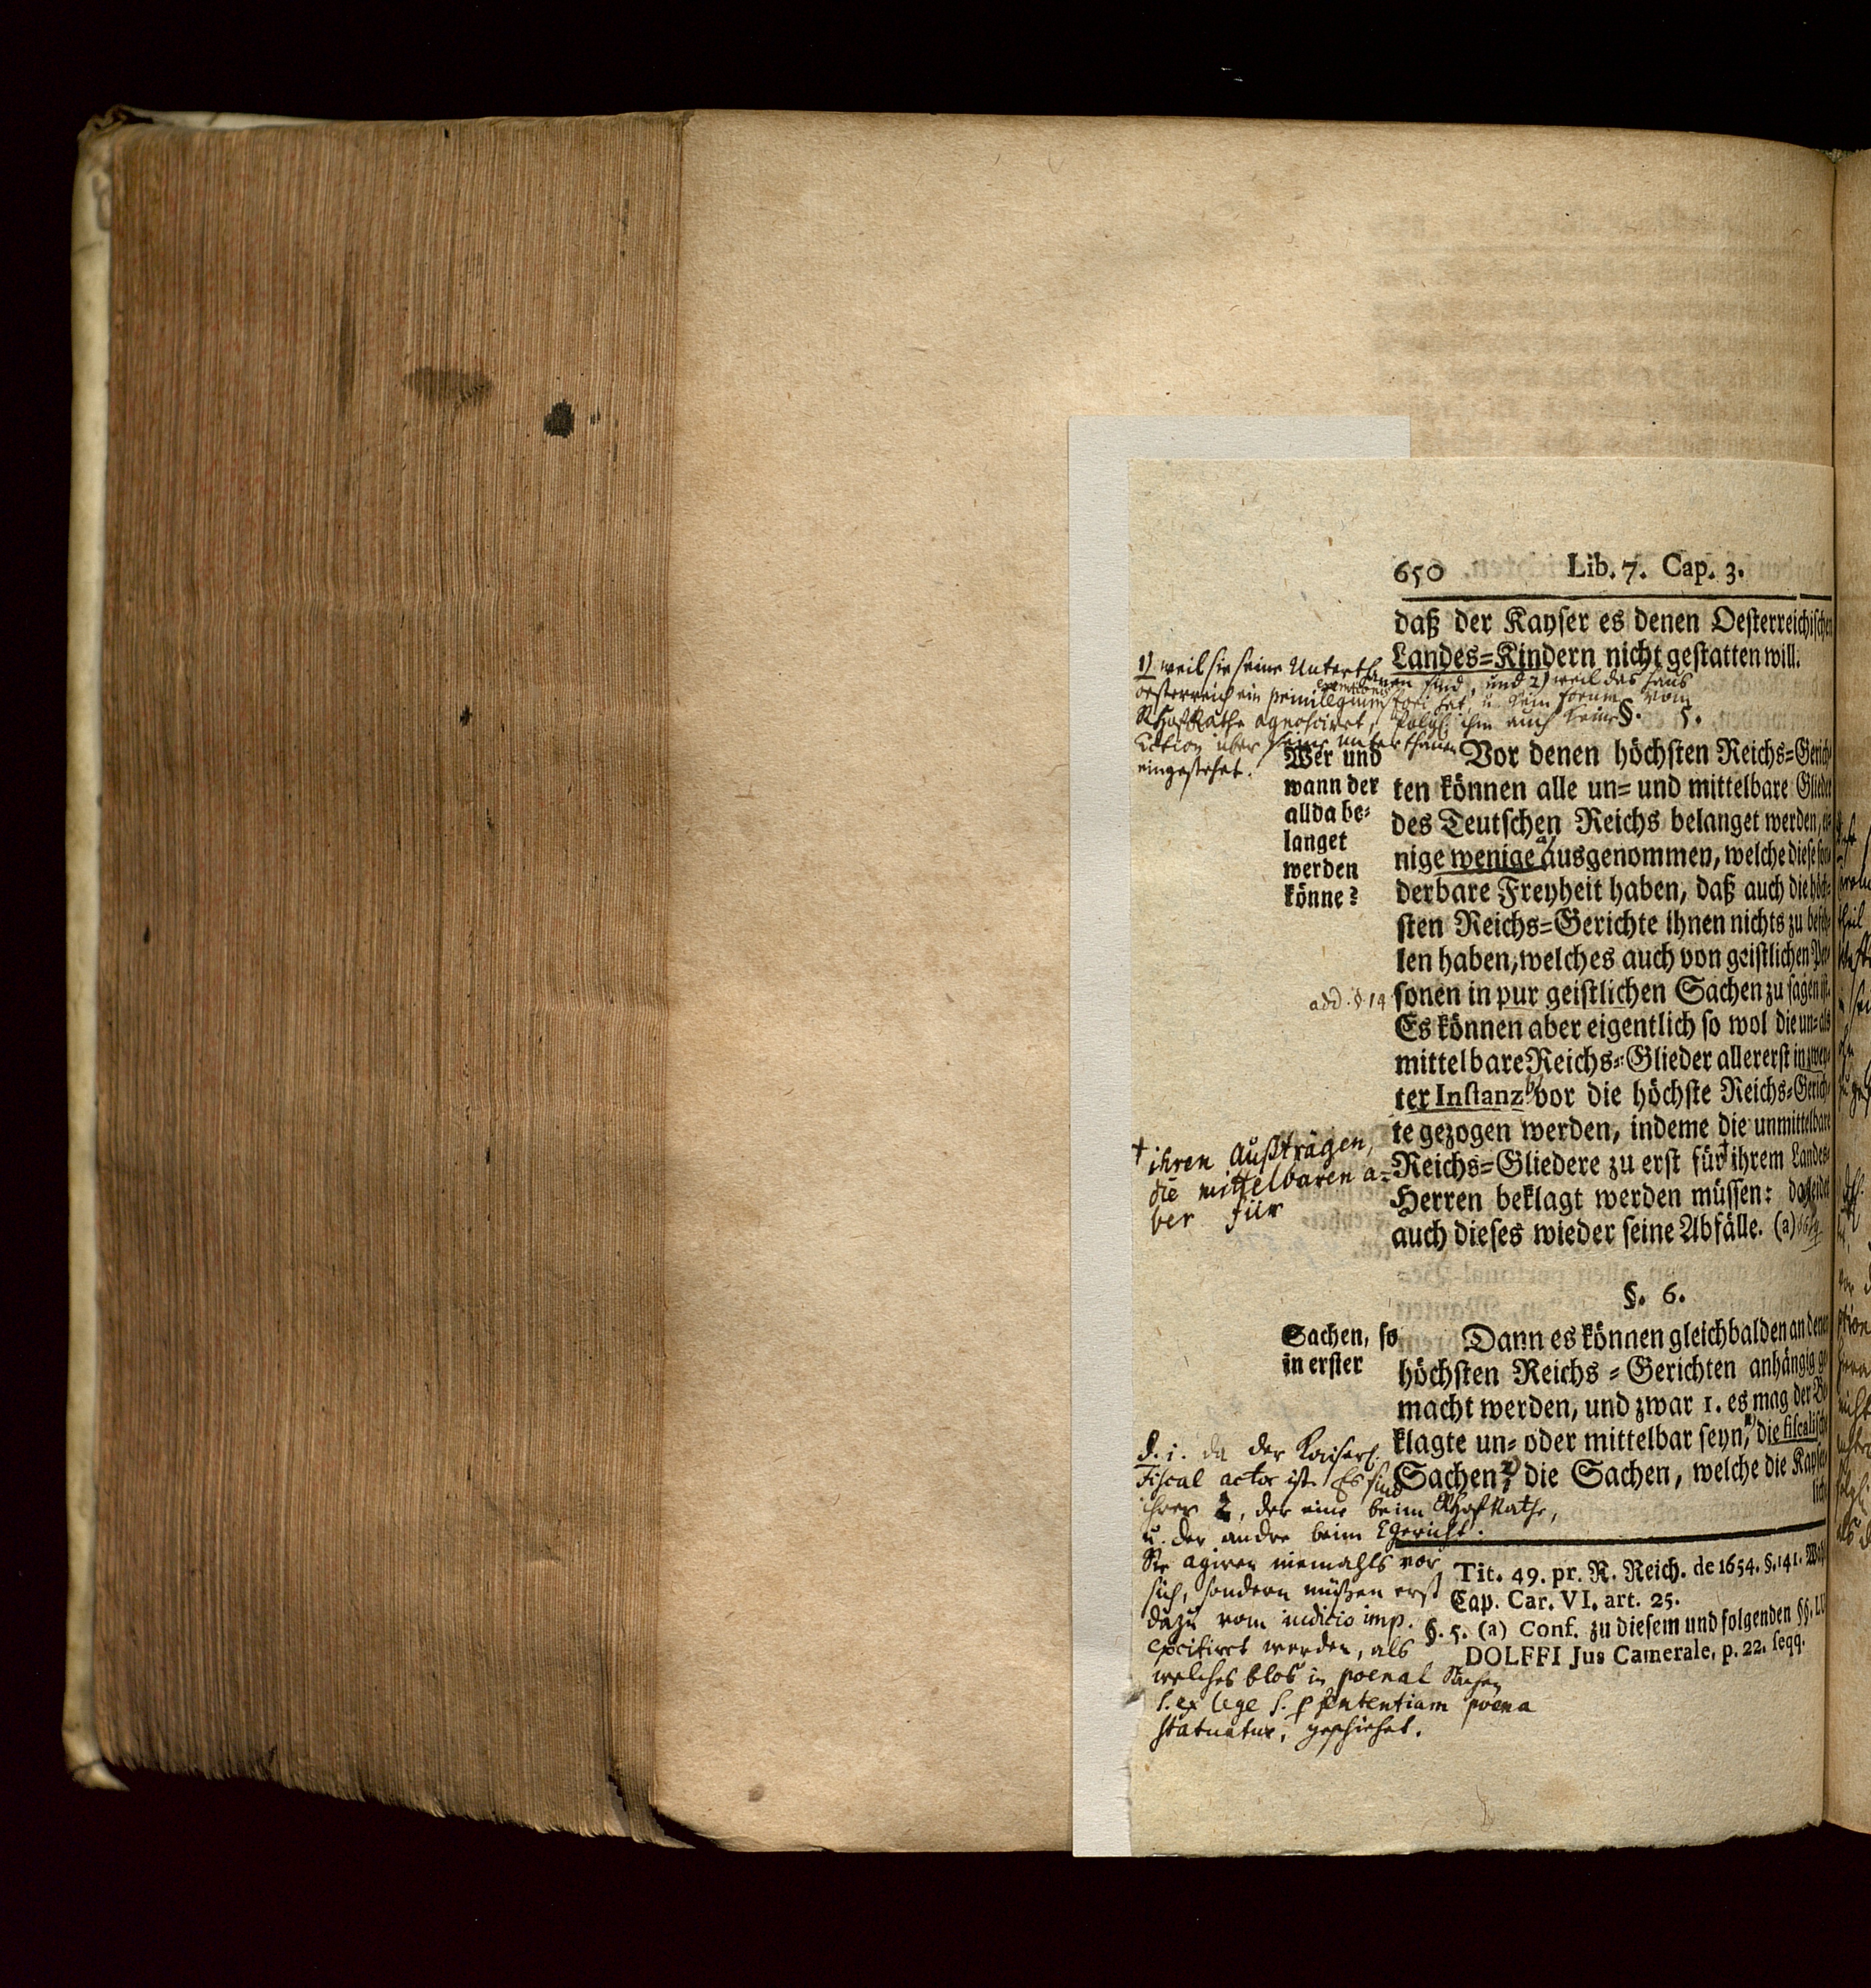 650 Lib. 7. Cap. 3.
daß der Kayser es denen Oesterreichischen
Landes=Kindern nicht gestatten will.
1) weil sie seine Unterthanen sind, und 2) weil das Haus
oesterreich ein privilegium exemtionis fori hat, u. kein forum vom
RHofRathe agnosciret, folgl. ihm auch keine
über seine unterthanen
eingestehet.
§. 5.
Wer und
wann der
allda be=
langet
werden
könne?
Vor denen höchsten Reichs=Gerich=
ten können alle un= und mittelbare Glieder
des Teutschen Reichs belanget werden, ei=
nige wenige a) ausgenommen, welche diese son=
derbare Freyheit haben, daß auch die höch=
sten Reichs=Gerichte ihnen nichts zu befeh=
len haben, welches auch von geistlichen Per=
add. § 14
sonen in pur geistlichen Sachen zu sagen ist.
Es können aber eigentlich so wol die un= als
mittelbare Reichs=Glieder allererst in zwey=
ter Instanz b) vor die höchste Reichs=Gerich=
te gezogen werden, indeme die unmittelbare
Reichs=Gliedere zu erst für † ihrem Landes=
Herren beklagt werden müssen: da
auch dieses wieder seine Abfälle. (a)
† ihren Austrägen,
die mittelbaren a=
ber für
§. 6.
Sachen, so
in erster
Dann es können gleichbalden an denen
höchsten Reichs=Gerichten anhängig ge
macht werden, und zwar 1. es mag der Be
klagte un= oder mittelbar seyn, die fiscalische
Sachen, 2) die Sachen, welche die Kayser
lich
d. i. da der Kaiserl.
Fiscal actor ist. Es sind
ihrer 2, der eine beim RHofRathe,
u. der andre beim CGericht.
Sie agiren niemahls vor
sich, sondern müßen erst
dazu vom iudicio imp.
excitiret werden, als
welches blos in poenal Sachen
s. ex lege s. p sententiam poena
statuatur, geschiehet.
Tit. 49. pr. R. Reich. de 1654. §. 141.
Cap. Car. VI. art. 25.
§. 5. (a) Conf. zu diesem und folgenden §§. LU
DOLFFI Jus Camerale, p. 22. seqq.